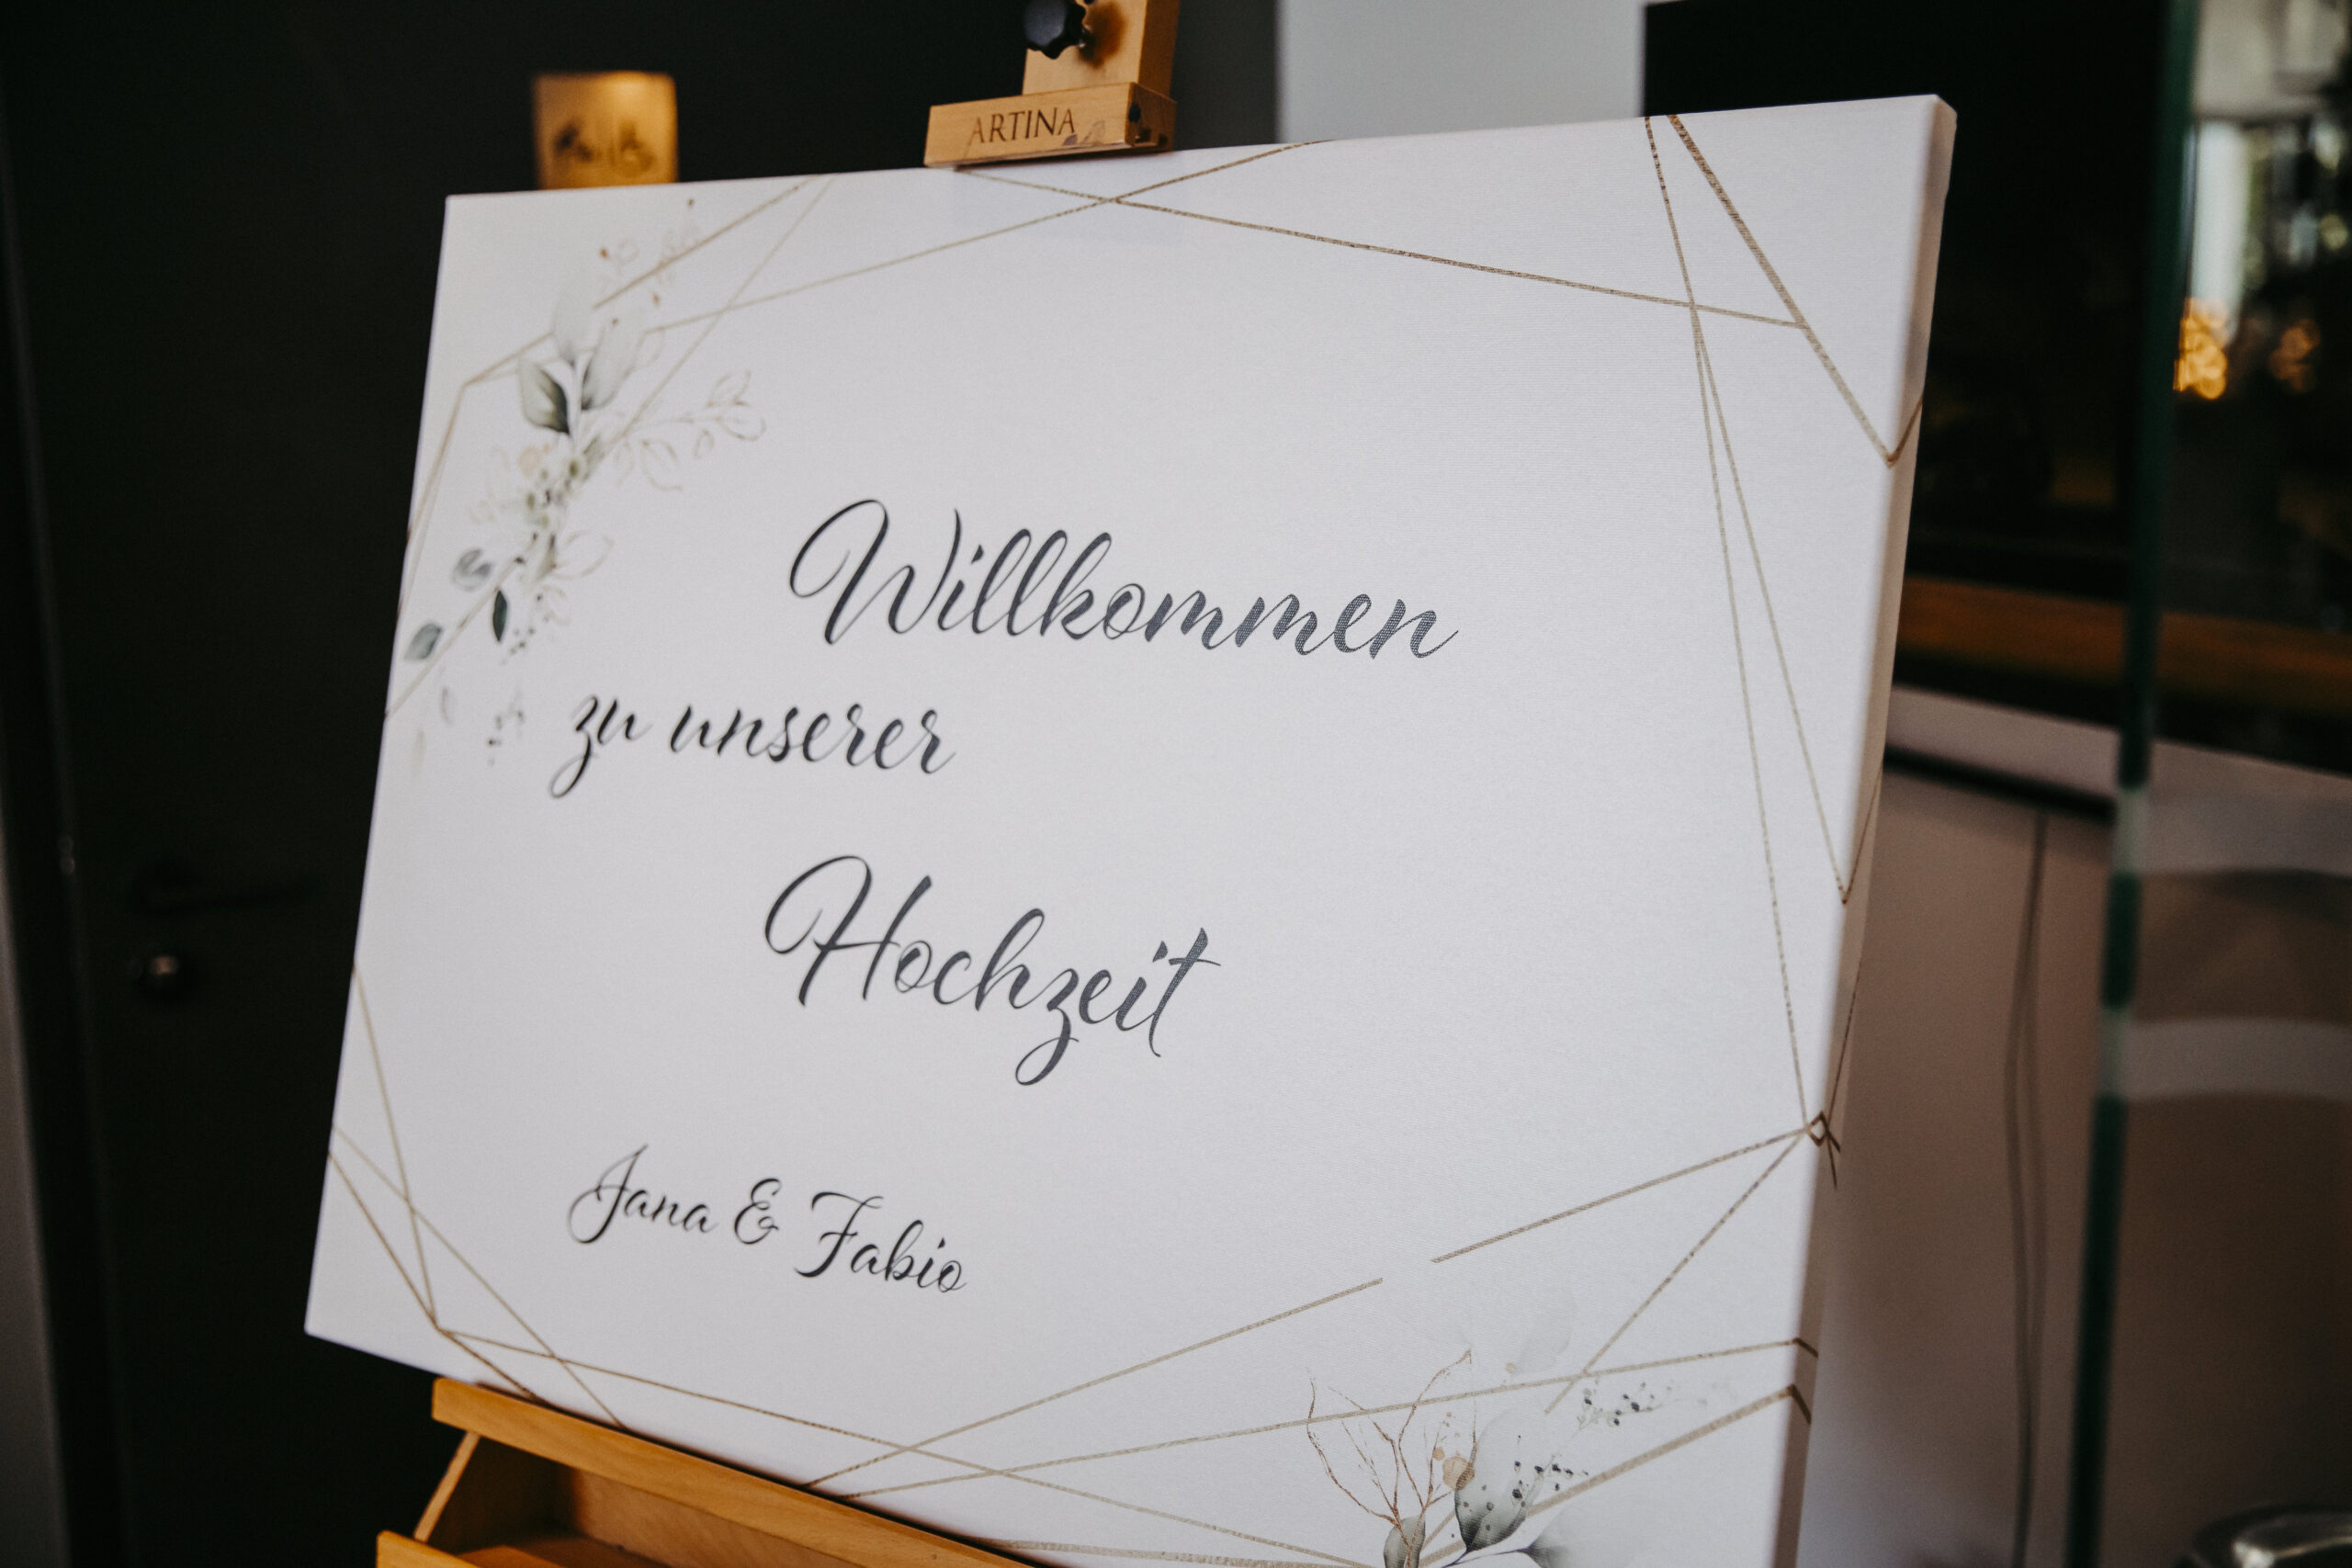 ARTINA
Willkommen
zu unserer
Hochzeit
Jana & Fabio